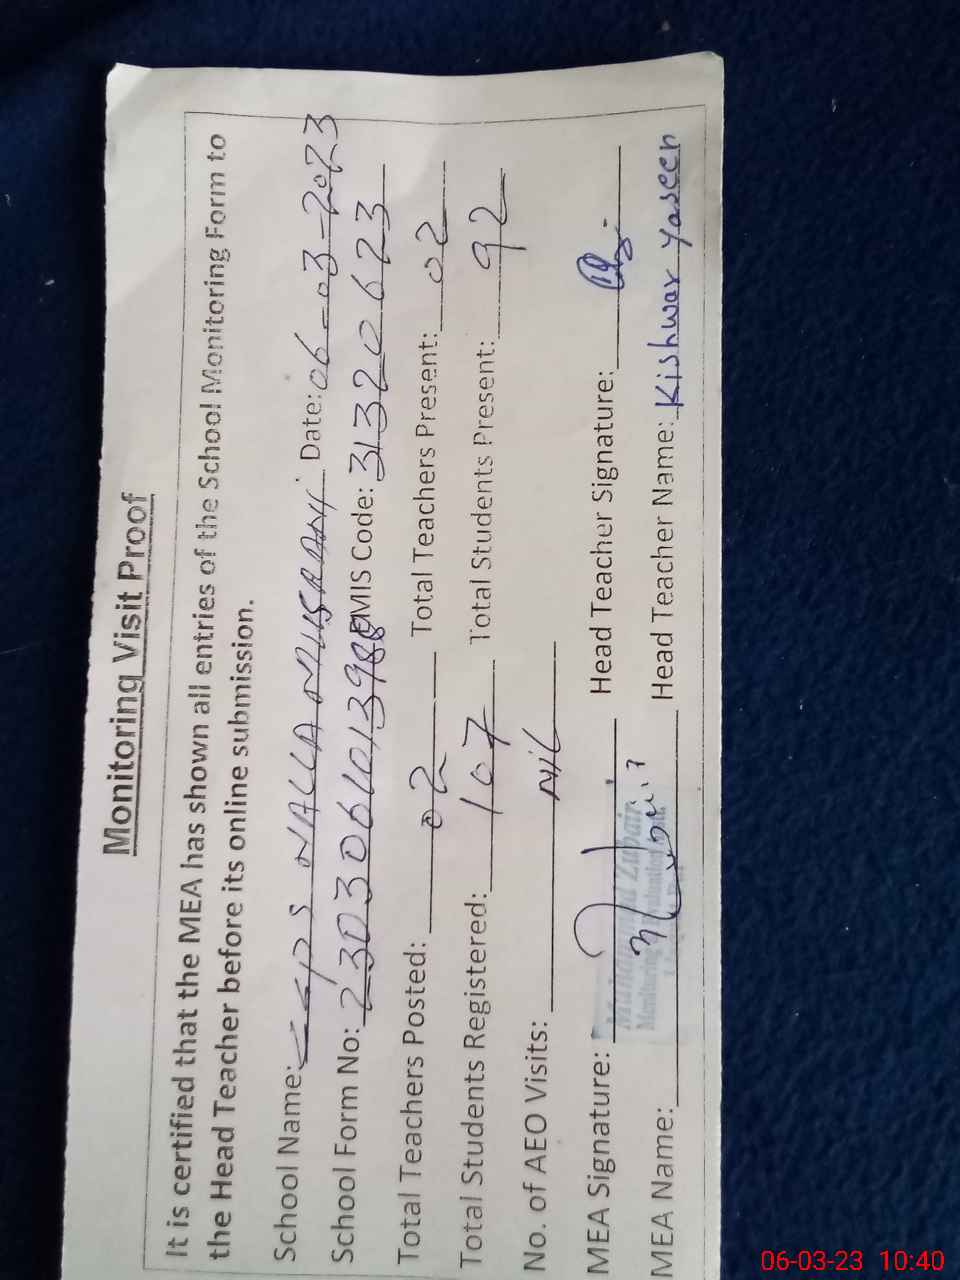 Monitoring Visit Proof
It is certified that the MEA has shown all entries of the School Monitoring Form to
the Head Teacher before its online submission.
School Name: NALLA Date: 06-03-2023
School Form No: EMIS Code: 31320623
Total Teachers Posted: 02 Total Teachers Present: 02
Total Students Registered: 107 Total Students Present: 92
No. of AEO Visits: Nil
MEA Signature: Head Teacher Signature:
Muhammad Zubair
Monitoring
MEA Name: Head Teacher Name: Kishwar Yaseen
06-03-23 10:40